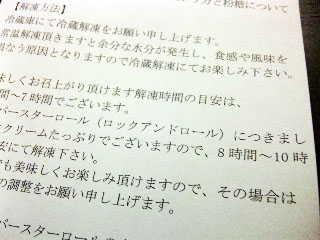 ラカと粉糖について
【解凍方法】
冷蔵庫にて冷蔵解凍をお願い申し上げます。
常温解凍頂きますと余分な水分が発生し、食感や風味を
損なう原因となりますので冷蔵解凍にてお楽しみ下さい。
味しくお召上がり頂けます解凍時間の目安は、
間～7時間でございます。
パースターロール（ロックアンドロール）につきまし
クリームたっぷりでございますので、8時間～10時
安にて解凍下さい。
も美味しくお楽しみ頂けますので、その場合は
の調整をお願い申し上げます。
パースターロール